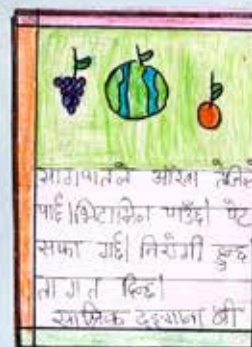 सागपातले आँखा तेजिलो
पार्छ। भिटामिन पाउँछ। पेट
सफा गर्छ। निरोगी हुन्छ
तागत दिन्छ।